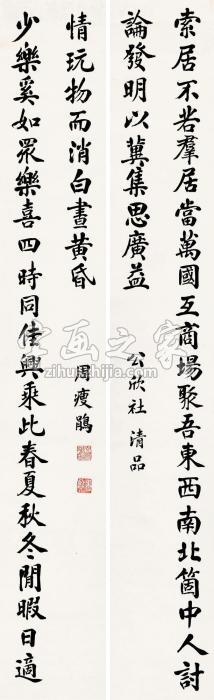 索居不若羣居當萬國互商場聚吾東西南北箇中人討
論發明以冀集思廣益
公欣社 清品
少樂奚如眾樂喜四時同佳興乘此春夏秋冬閒暇日適
情玩物而消白晝黃昏
周瘦鵑
字画之家
www.zihuazhijia.com